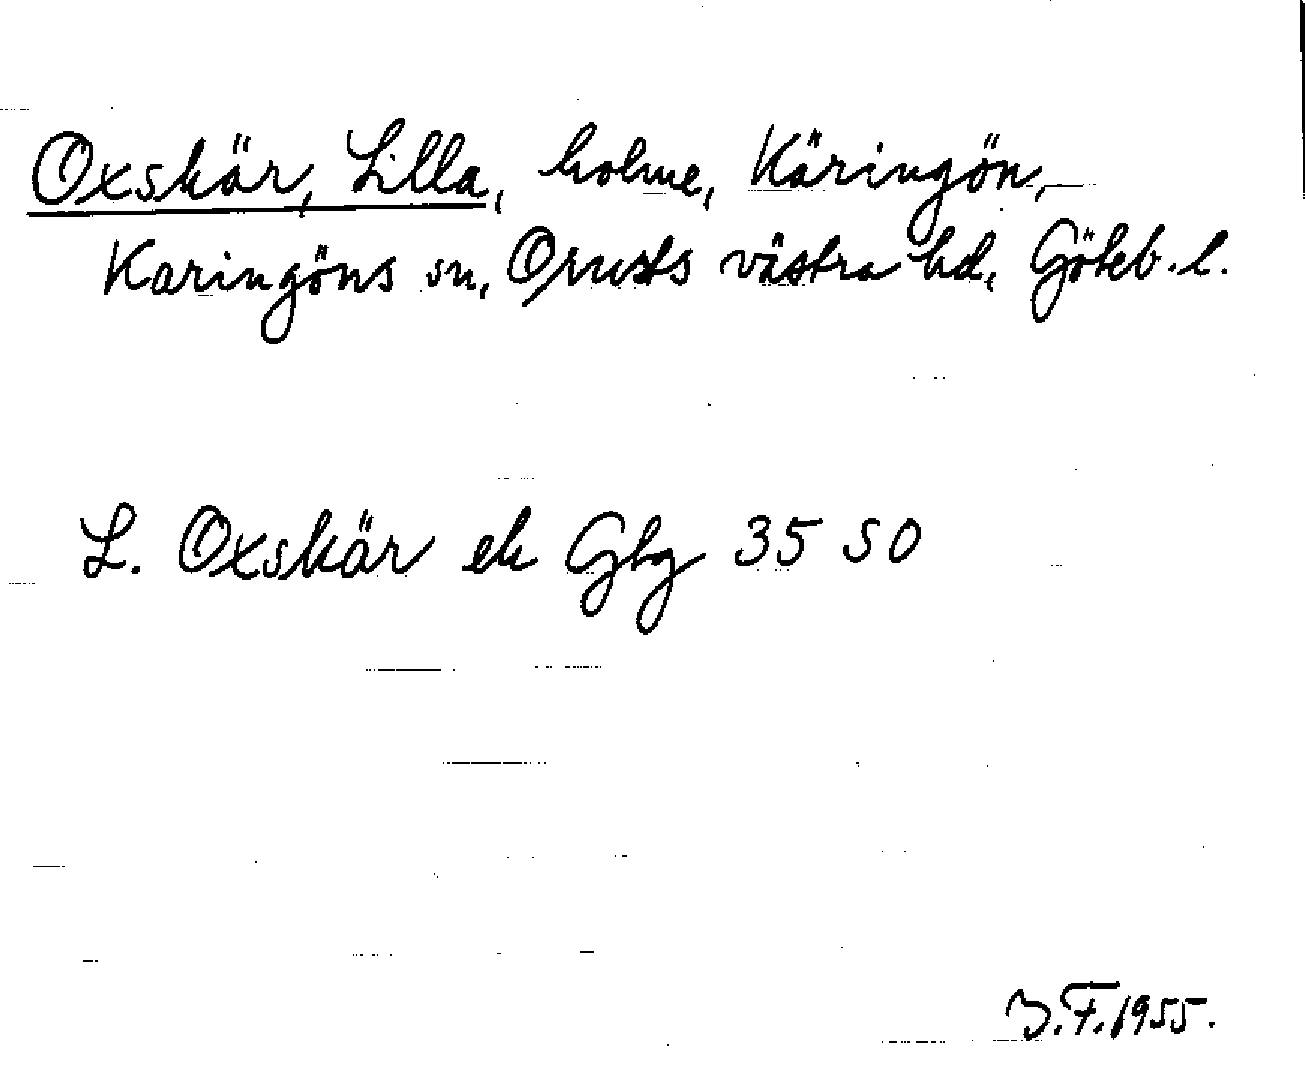 Oxskär, Lilla, holme, Käringön,
Karingöns sn, Orusts västra hd, Göteb. l.
L. Oxskär ek Gbg 35 SO
B.F. 1955.